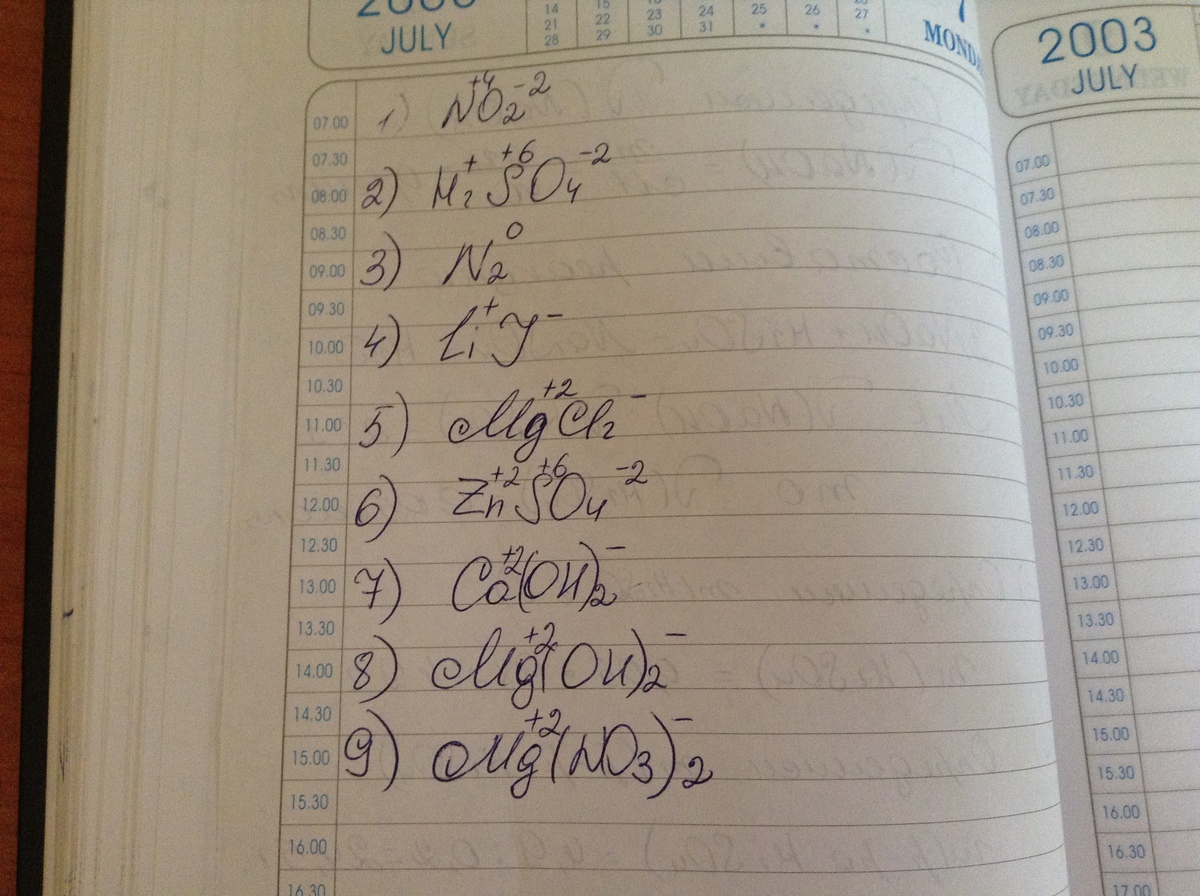 JULY
14 23 24 25 26 27
21 22 30 31
28 29
MOND
2003
JULY
07.00 1) N⁺⁴O₂⁻²
07.30
08.00 2) H₂⁺S⁺⁶O₄⁻²
08.30
09.00 3) N₂⁰
09.30
10.00 4) Li⁺J⁻
10.30
11.00 5) Mg⁺²Cl₂⁻
11.30
12.00 6) Zn⁺²S⁺⁶O₄⁻²
12.30
13.00 7) Ca⁺²(OH)₂⁻
13.30
14.00 8) Mg⁺²(OH)₂⁻
14.30
15.00 9) Mg⁺²(NO₃)⁻₂
15.30
16.00
16.30
07.00
07.30
08.00
08.30
09.00
09.30
10.00
10.30
11.00
11.30
12.00
12.30
13.00
13.30
14.00
14.30
15.00
15.30
16.00
16.30
17.00